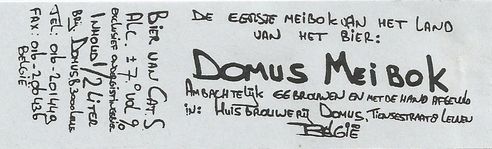 DE EERSTE MEIBOK VAN HET LAND
VAN HET BIER:
DOMUS MEIBOK
AMBACHTELIJK GEBROUWEN EN MET DE HAND AFGEVULD
IN: HUISBROUWERIJ DOMUS, TIENSESTRAAT 8 LEUVEN
BELGIË
BIER VAN CAT. S
ALC. ± 7% vol
INHOUD 1/2 LITER
BRIJ DOMUS B 3000 LEUVEN
TEL. 016-201449
FAX: 016-206436
BELGIË